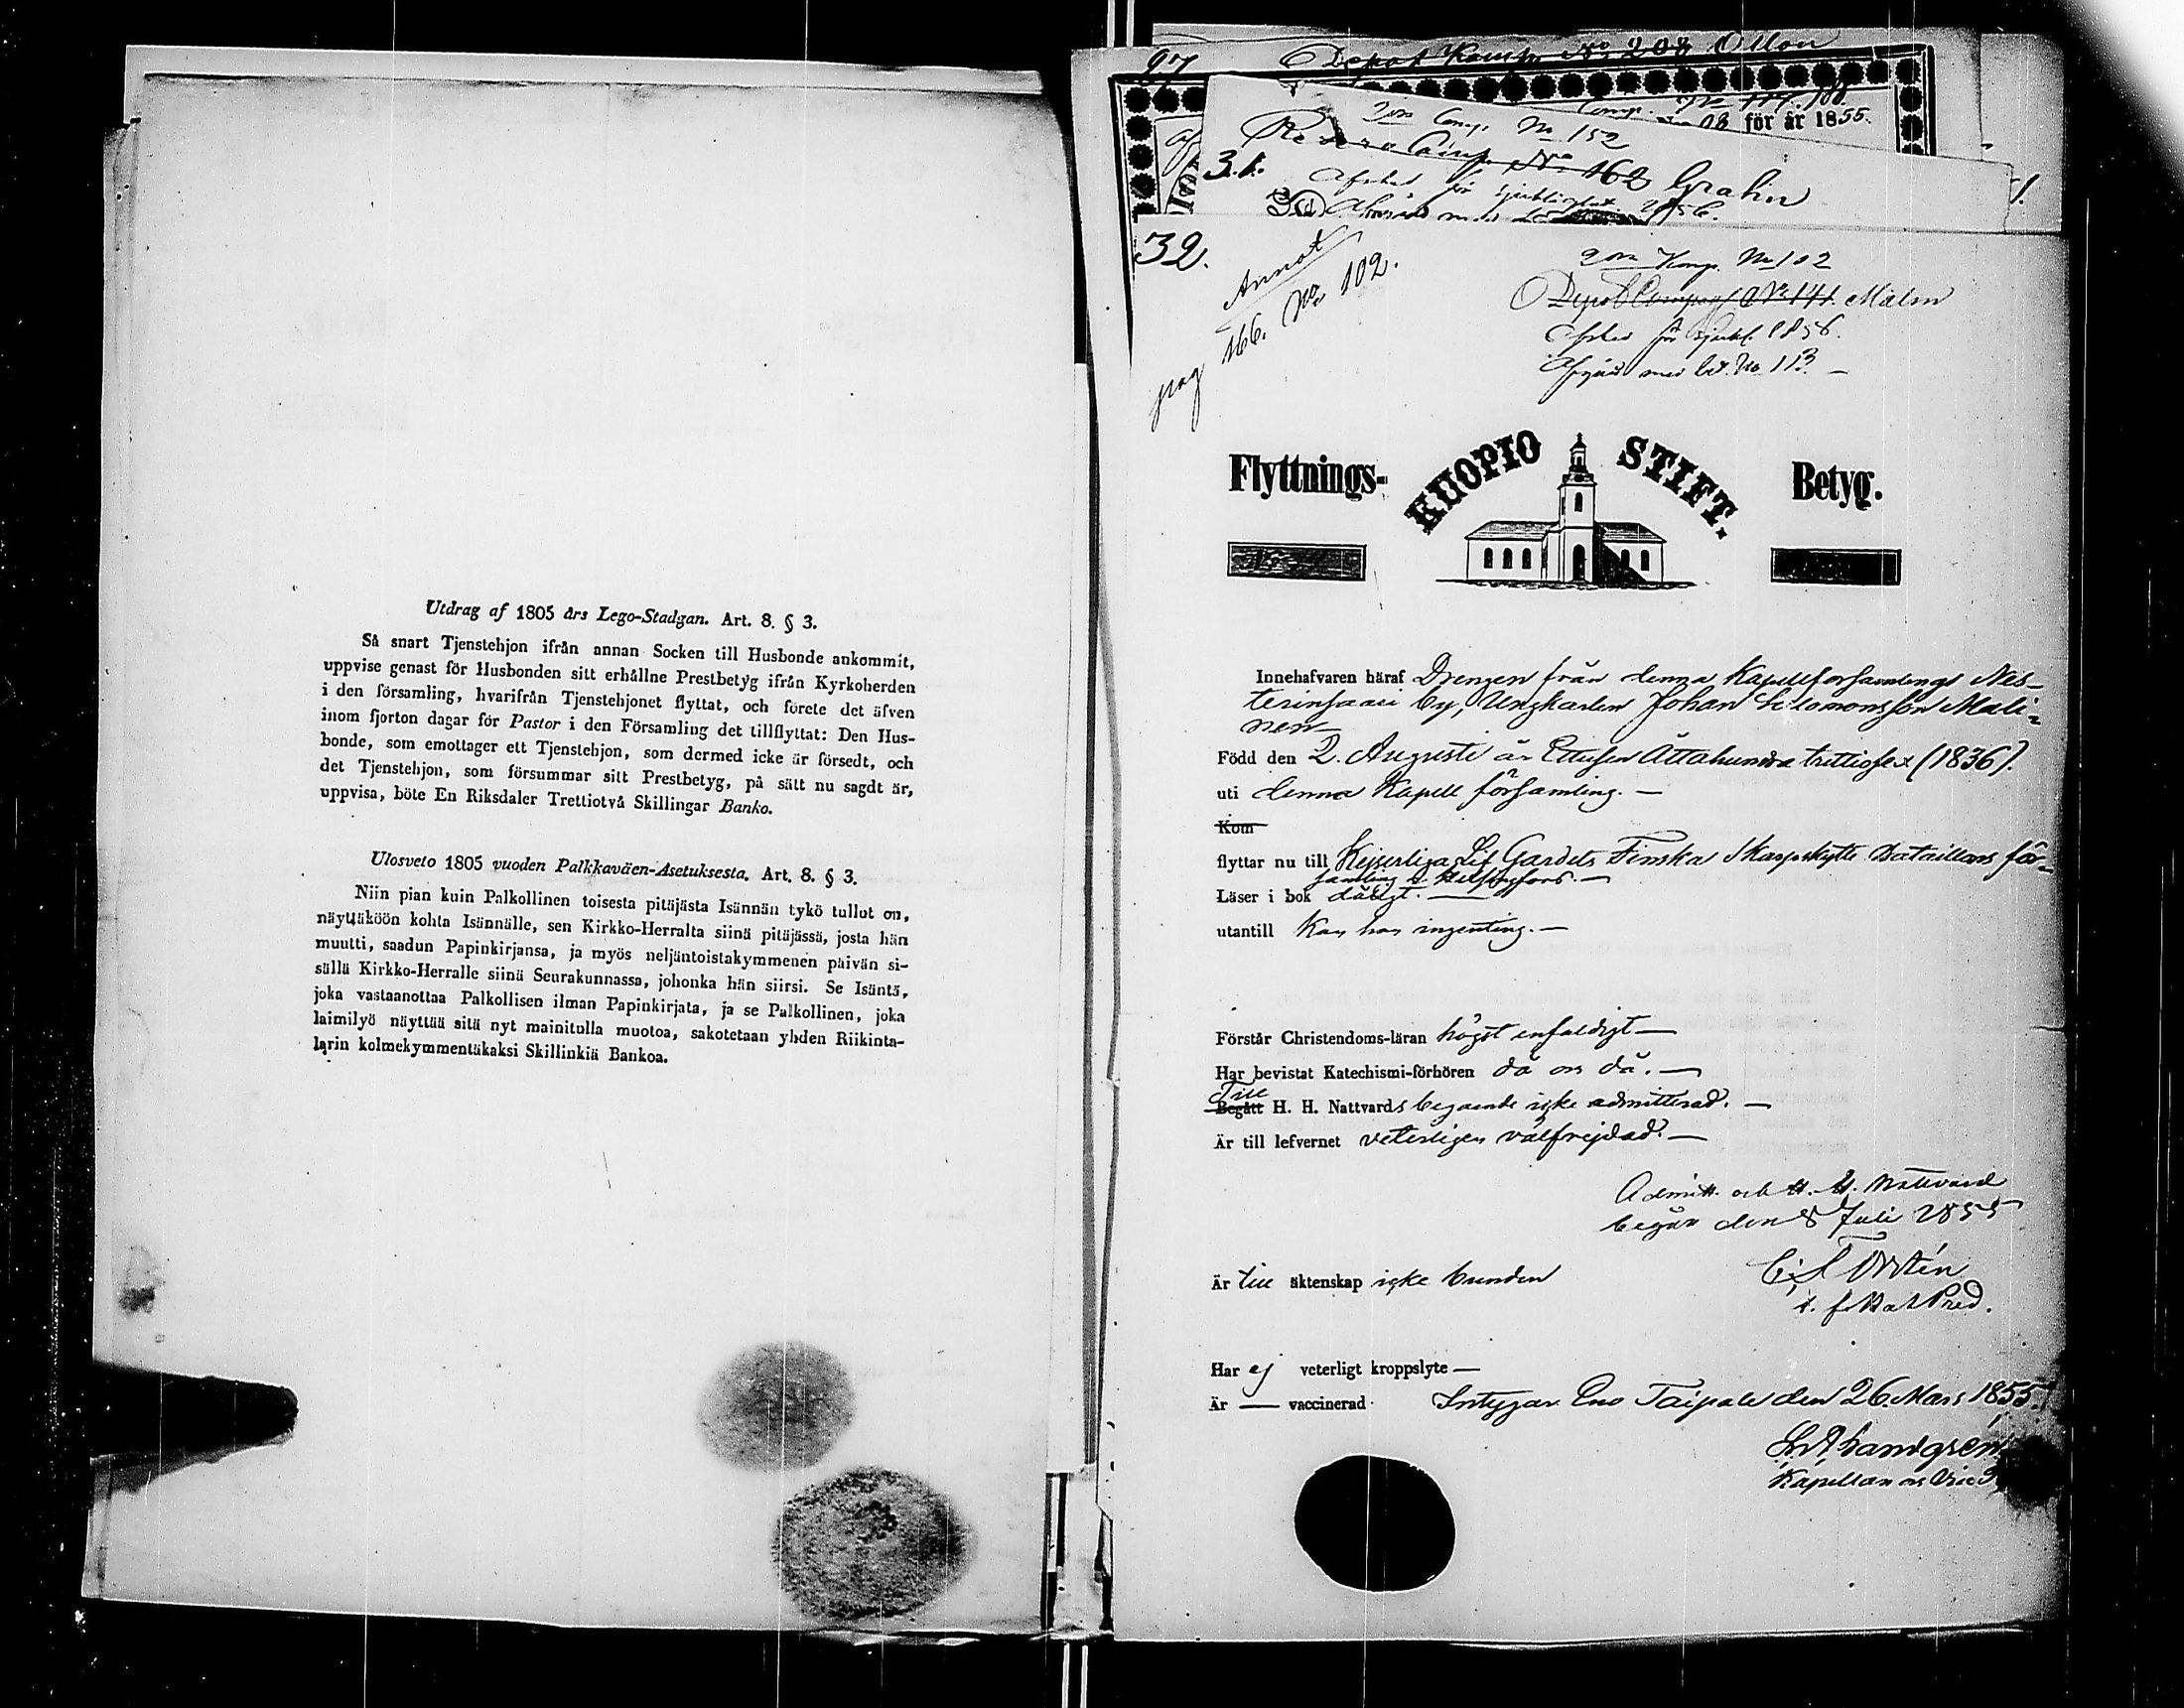 Utdrag af 1805 års Lego-Stadgan. Art. 8. § 3.
Så snart Tjenstehjon ifrån annan Socken till Husbonde ankommit,
uppvise genast för Husbonden sitt erhållne Prestbetyg ifrån Kyrkoherden
i den församling, hvarifrån Tjenstehjonet flyttat, och förete det äfven
inom fjorton dagar för Pastor i den Församling det tillflyttat: Den Hus-
bonde, som emottager ett Tjenstehjon, som dermed icke är försedt, och
det Tjenstehjon, som försummar sitt Prestbetyg, på sätt nu sagdt är,
uppvisa, böte En Riksdaler Trettiotvå Skillingar Banko.
Ulosveto 1805 vuoden Palkkaväen-Asetuksesta. Art. 8. § 3.
Niin pian kuin Palkollinen toisesta pitäjästa Isännän tykö tullut on,
näyttäköön kohta Isännälle, sen Kirkko-Herralta siinä pitäjässä, josta hän
muutti, saadun Papinkirjansa, ja myös neljäntoistakymmenen päivän si-
sällä Kirkko-Herralle siinä Seurakunnassa, johonka hän siirsi. Se Isäntä,
joka vastaanottaa Palkollisen ilman Papinkirjata, ja se Palkollinen, joka
laimilyö näyttää sitä nyt mainitulla muotoa, sakotetaan yhden Riikinta-
larin kolmekymmentäkaksi Skillinkiä Bankoa.
97 Depot Komp. No 208 Ollon
för år 1855.
Comp. No 152
31. Reserv Comp. No 162 Grahn
Afsked för sjuklighet 1856.
32.
Annot
pag 166. No 102.
2dra Komp. No 102
Depot Compagn No 141. Malm
Afsked för sjukl. 1856.
Afgård med bet. No 113. –
Flyttnings- KUOPIO STIFT. Betyg.
Innehafvaren häraf Drengen från denna Kapellförsamlings Nes-
terinsaari by, Ungkarlen Johan Salomonsson Mali-
nen
Född den 2. Augusti år Ettusen Åttahundra trettiosex (1836).
uti denna Kapell församling. –
Kom
flyttar nu till Kejserliga Lif Gardets Finska Skarpskytte Bataillons för-
samling i Helsingfors. –
Läser i bok dåligt. –
utantill Kan han ingenting. –
Förstår Christendoms-läran högst enfaldigt –
Har bevistat Katechismi-förhören då och då. –
Till
Begått H. H. Nattvards begående icke admitterad. –
Är till lefvernet veterligen välfrejdad. –
Admitt. och H. H. Nattvard
begår den 8 Juli 1855
Är till äktenskap icke bunden
Har ej veterligt kroppslyte –
Är – vaccinerad. Intygar Eno Taipale den 26. Mars 1855.
Kapellan